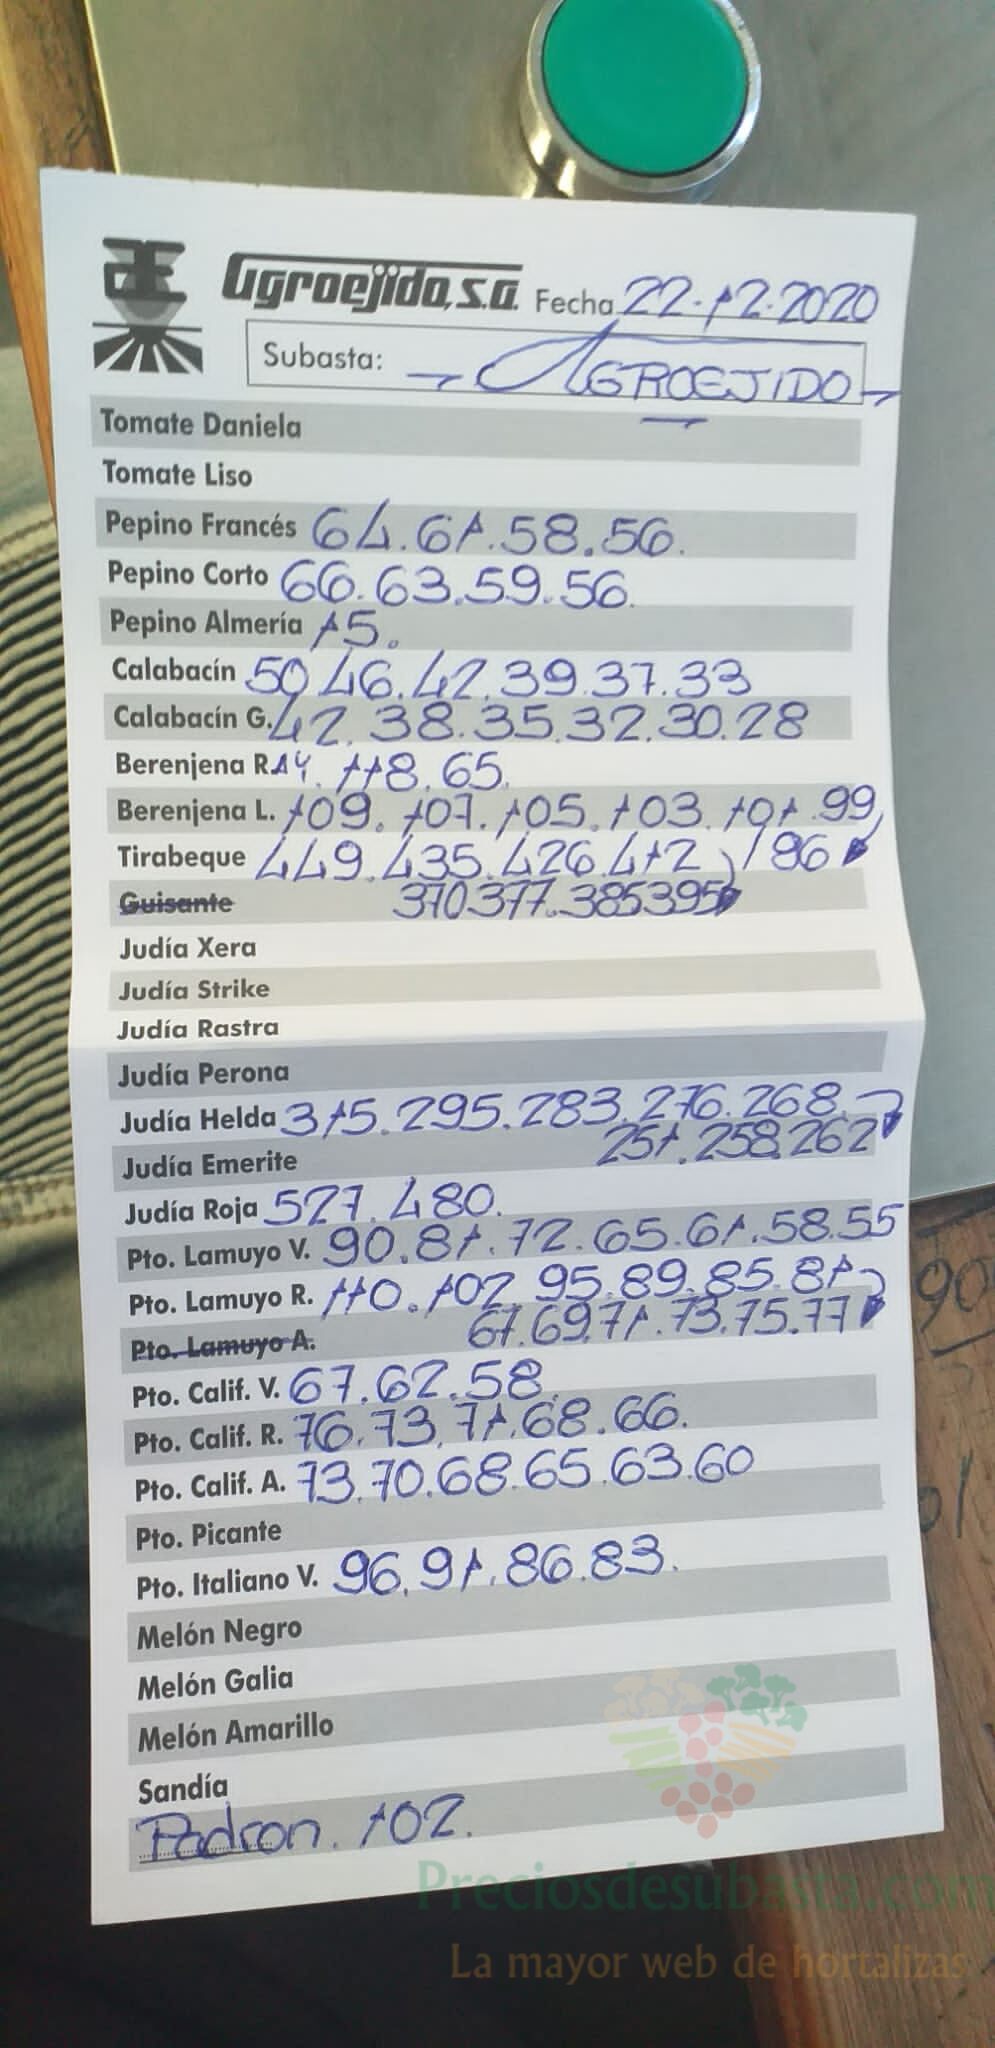 Agroejido, S.A. Fecha 22-12-2020
Subasta: AGROEJIDO
Tomate Daniela
Tomate Liso
Pepino Francés 64.61.58.56.
Pepino Corto 66.63.59.56.
Pepino Almería 15.
Calabacín 50 46.42.39.37.33
Calabacín G. 42.38.35.32.30.28
Berenjena R. 118.65.
Berenjena L. 109.107.105.103.101.99
Tirabeque 449.435.426.412
Guisante 370.377.385 395
Judía Xera
Judía Strike
Judía Rastra
Judía Perona
Judía Helda 315.295.283.276.268
251.258.262
Judía Emerite
Judía Roja 527.480.
Pto. Lamuyo V. 90.81.72.65.61.58.55
Pto. Lamuyo R. 110.102 95.89.85.81
Pto. Lamuyo A. 67.69.71.73.75.77
Pto. Calif. V. 67.62.58.
Pto. Calif. R. 76.73.71.68.66.
Pto. Calif. A. 73.70.68.65.63.60
Pto. Picante
Pto. Italiano V. 96.91.86.83.
Melón Negro
Melón Galia
Melón Amarillo
Sandía
Padron. 102.
Preciosdesubasta.com
La mayor web de hortalizas
90